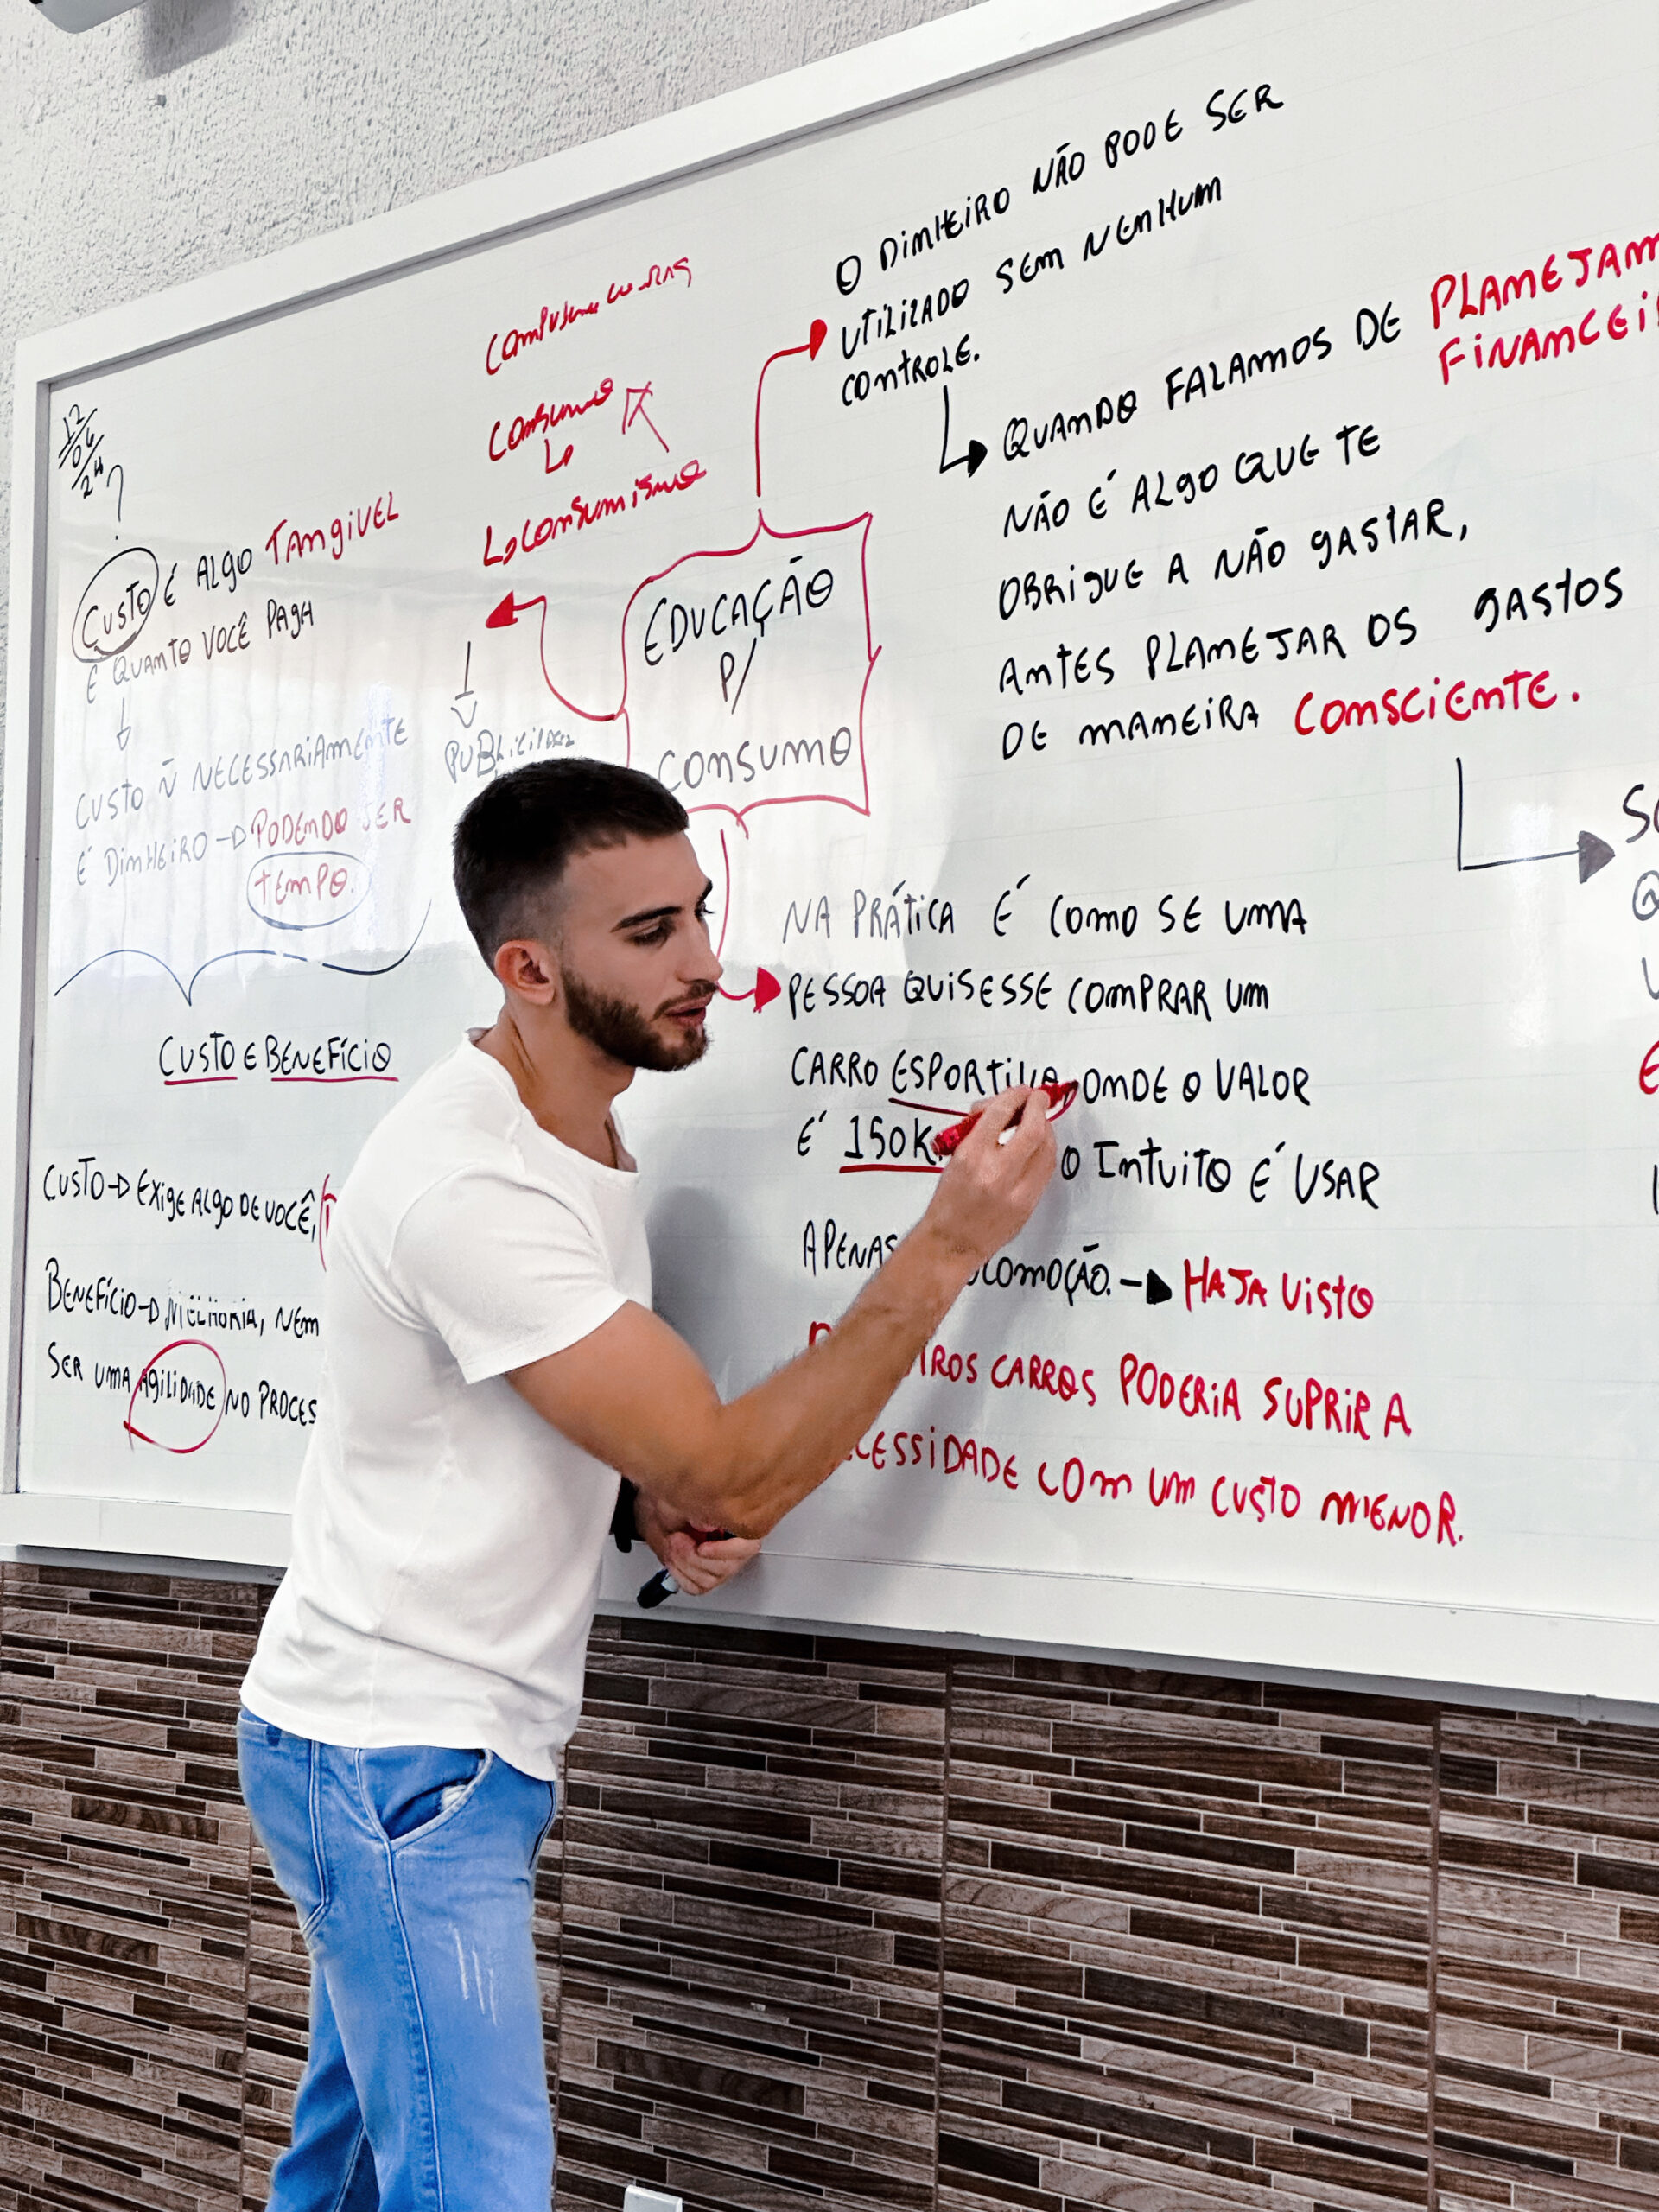 12
06
24
?
CUSTO É ALGO TANGIVEL
E QUANTO VOCÊ PAGA
CUSTO Ñ NECESSARIAMENTE
É DINHEIRO → PODENDO SER
TEMPO.
CUSTO E BENEFÍCIO
CUSTO → EXIGE ALGO DE VOCÊ,
BENEFÍCIO → MELHORIA, NEM
SER UMA AGILIDADE NO PROCES
CONSUMO
↳ CONSUMISMO
EDUCAÇÃO
P/
CONSUMO
O DINHEIRO NÃO PODE SER
UTILIZADO SEM NENHUM
CONTROLE.
QUANDO FALAMOS DE PLANEJAM
FINANCEI
NÃO É ALGO QUE TE
OBRIGUE A NÃO GASTAR,
ANTES PLANEJAR OS GASTOS
DE MANEIRA CONSCIENTE.
NA PRÁTICA É COMO SE UMA
PESSOA QUISESSE COMPRAR UM
CARRO ESPORTIVO, ONDE O VALOR
É 150K O INTUITO É USAR
APENAS LOCOMOÇÃO. → HAJA VISTO
CARROS PODERIA SUPRIR A
NECESSIDADE COM UM CUSTO MENOR.